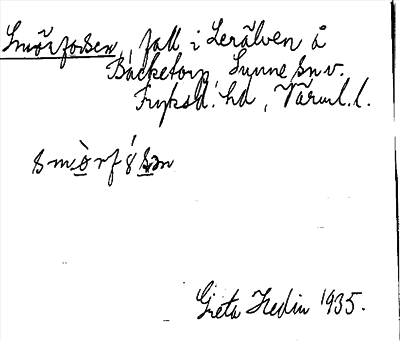 Smörforsen, fall i Lerälven å
Bäcketorp, Sunne sn v.
Fryksd. hd, Värml. l.
smò̱rfʹ8s̱ən
Greta Hedin 1935.